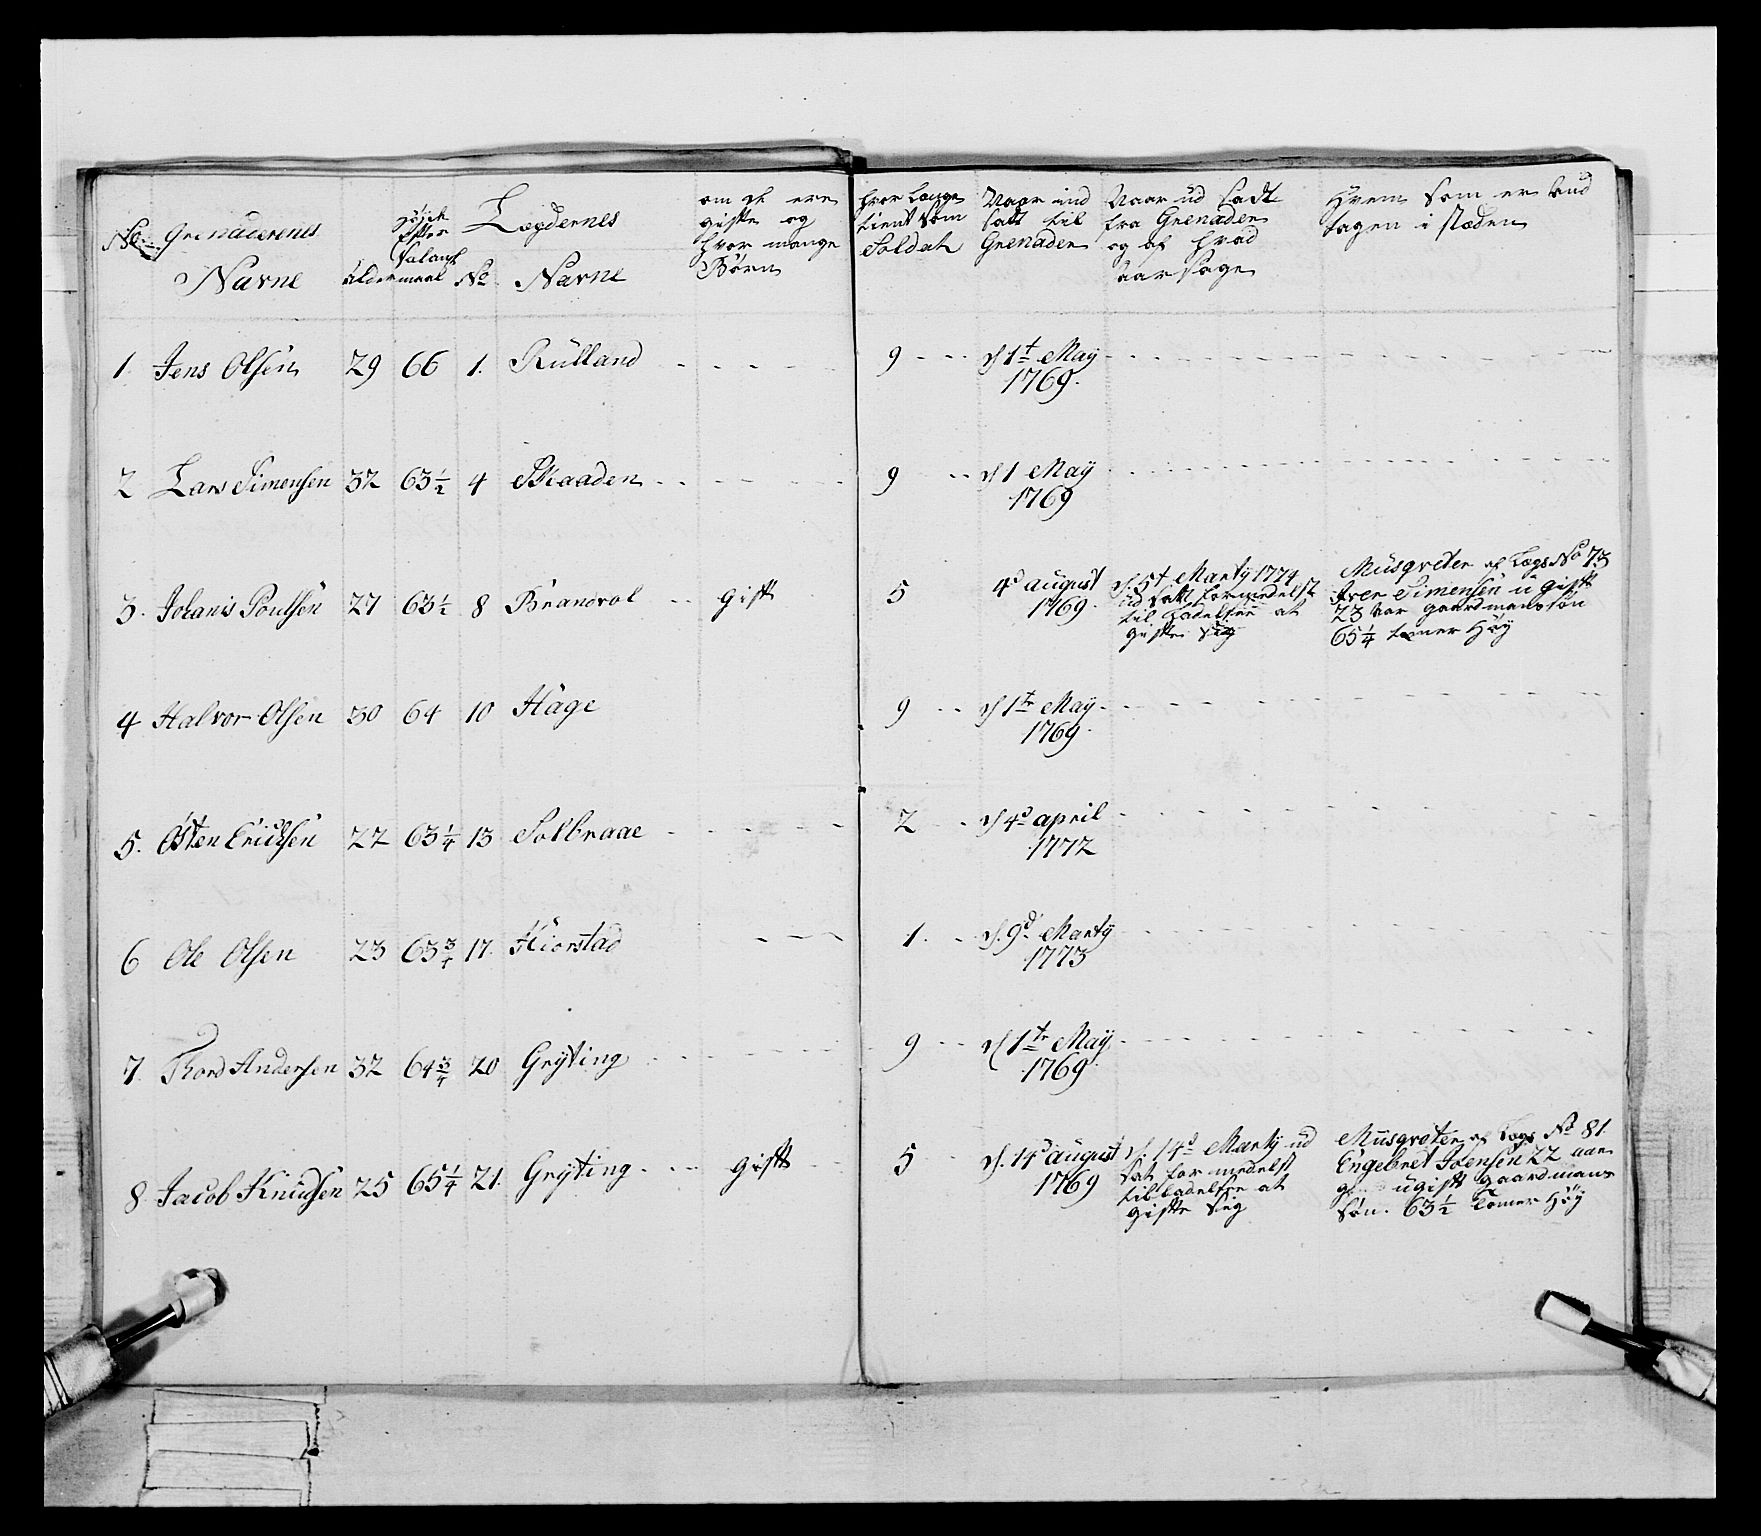 No. Grenaderernes Navne
alder
maal
Lægdernes
No. Navne
om de ere
gifte og
hvor mange
Børn
hvor Længe
tient som
Soldat
Naar ind
satt til
Grenader
Naar ud Sadt
fra Grenader
og af hvad
aarsage
Hvem som er and
tagen i stæden
1. Jens Olsen 29 66 1. Rülland 9 d 1t May
1769.
2 Lars Simensen 32 63½ 4 Skaaden 9 d 1 May
1769
3. Johanis Poulsen 27 63½ 8 Brandvol gift 5 4d august
1769.
d. 5t Marty 1774
ud satt formedelst
tilladelsen at
gifte sig
Müsqveter af Legs No 73
Iver Simensen ugift
23 aar gaardmans søn
65¼ tomer Høÿ
4 Halvor Olsen 30 64 10 Hage 9 d 1te May
1769.
5. Østen Erichsen 22 63¼ 13 Solbraae 2 d 4d april
1772
6 Ole Olsen 23 63¾ 17. Kiorstad 1. d. 9d. Marty
1773
7. Thord Andersen 32 64¾ 20 Grÿting 9 d 1te May
1769
8. Jacob Knudsen 25 65¼ 21. Grÿting gift 5 d. 14d august
1769
d. 14d Marty ud
sat formedelst
tilladelse at
gifte sig
Müsqveter af Legs No 81.
Engebret Joensen 22 aar
ugift gaardmans
søn. 63½ tomer Høÿ